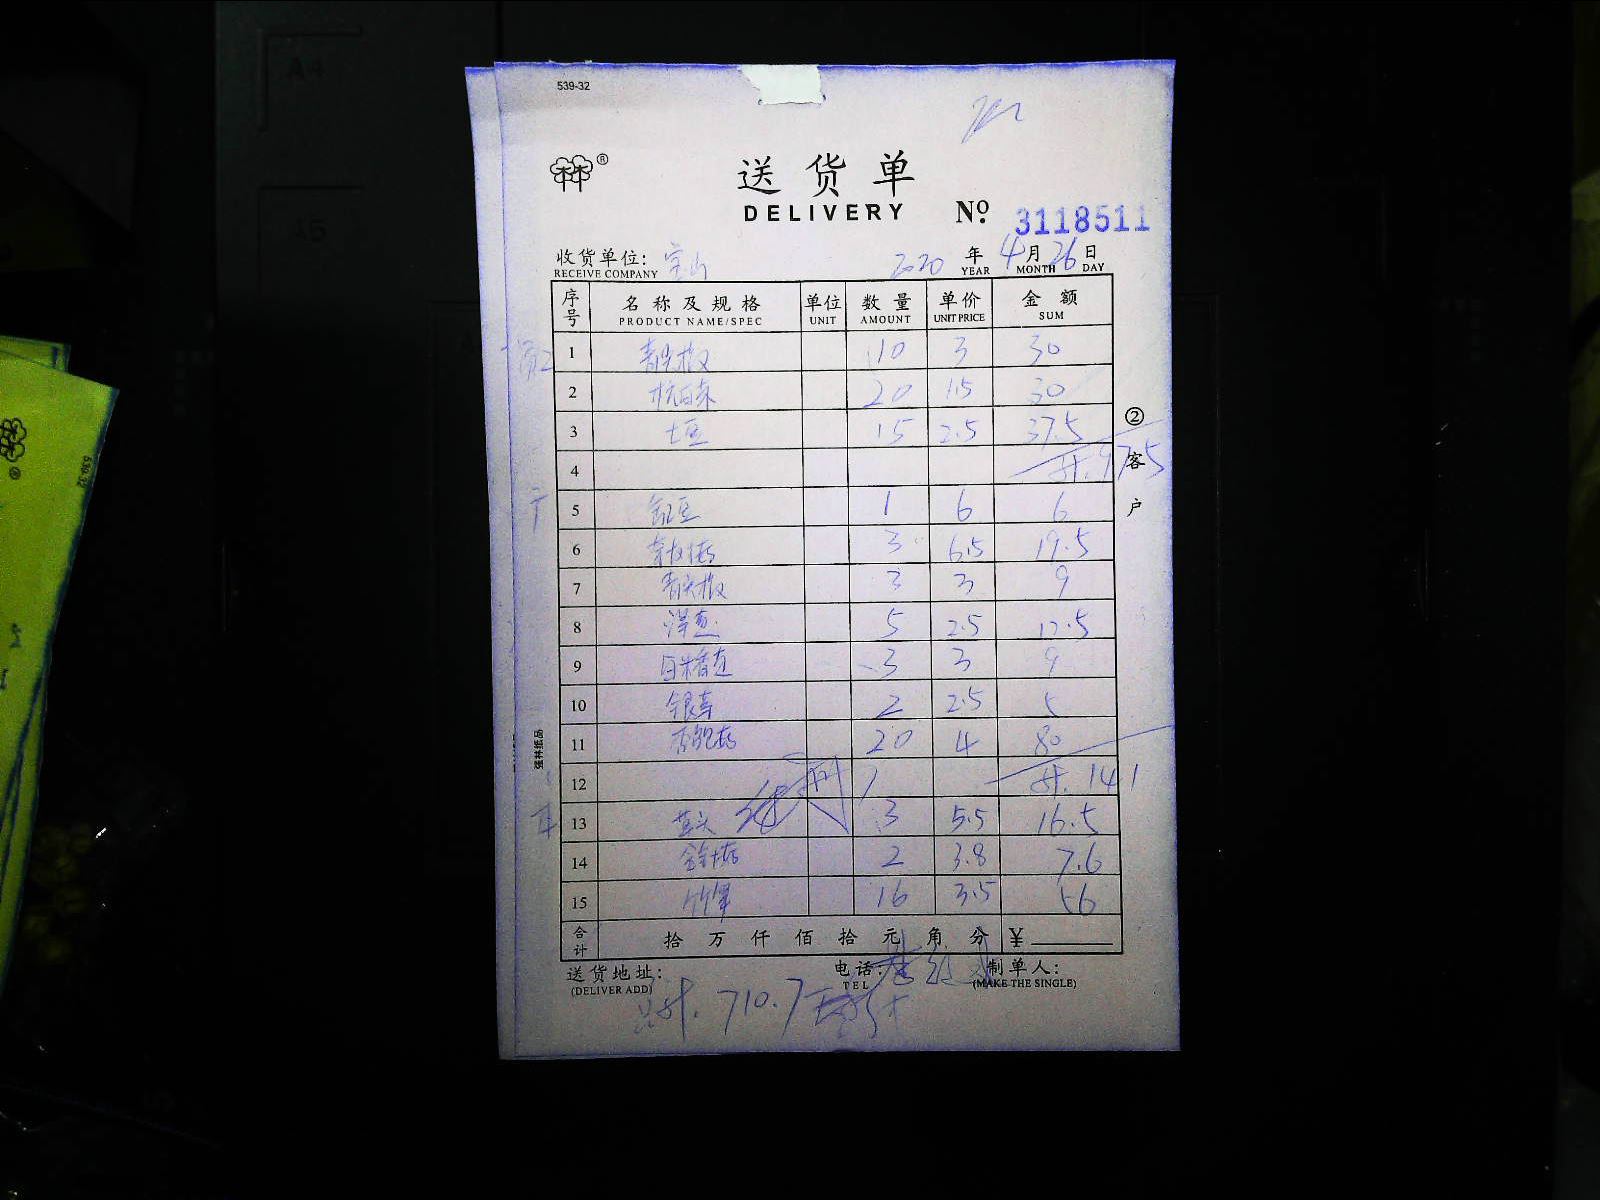 539-32
®
送货单
DELIVERY
Nº 3118511
收货单位: 宝山 2020 年 4 月 26 日
RECEIVE COMPANY YEAR MONTH DAY
序号 名称及规格 单位 数量 单价 金额
PRODUCT NAME/SPEC UNIT AMOUNT UNIT PRICE SUM
1 青尖椒 10 3 30
2 杭白菜 20 1.5 30
3 土豆 15 2.5 37.5
4 计. 97.5
5 6 6
5 1
6 3 6.5 19.5
7 青尖椒 3 3 9
8 洋葱 5 2.5 12.5
9 3 3 9
10 银芽 2 2.5 5
11 杏鲍菇 20 4 80
12 计. 141
13 3 5.5 16.5
14 金针菇 2 3.8 7.6
15 竹笋 16 3.5 56
合计 拾 万 仟 佰 拾 元 角 分 ¥
送货地址: 电话: 制单人:
(DELIVER ADD) TEL (MAKE THE SINGLE)
总计. 710.7
② 客户
强林纸品
A4
A5
539-32